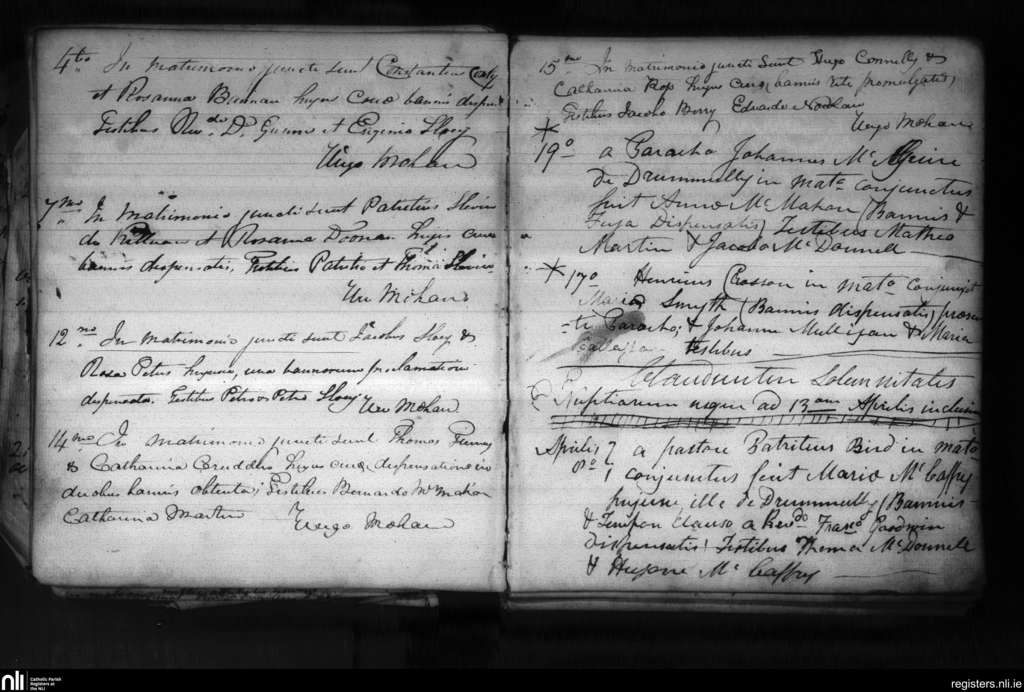 4to In matrimonio juncti sunt Constantius
et Rosanna Bannan hujus Curae bannis dispen
Testibus Revdo D. Gunn et Eugenio Sloey
Hugo Mohan
7mo In Matrimonio juncti sunt Patritius Slevin
de et Rosanna Doonan hujus curae
bannis dispensatis, Testibus Patritio et Thoma Slevin
Mohan
12mo In Matrimonio juncti sunt Jacobus Sloey &
Rosa Peters hujus, una bannorum proclamatione
dispensata. Testibus Petro & Petro Sloey Mohan
14mo In matrimonio juncti sunt Thomas
& Catharina hujus curae dispensatione in
duobus bannis obtenta; Testibus Bernardo McMahon
Catharina Martin Hugo Mohan
15mo In matrimonio juncti sunt Hugo Connelly &
Catharina Ross hujus curae, bannis rite promulgatis,
Testibus Jacobo Berry Edwardo
Hugo Mohan
19o a Paracho Johannes McGuire
de Drummully in mato conjunctus
fuit Anna McMahon (Bannis &
Dispensatis) Testibus Matheo
Martin & Jacobo McDonnell
17o Henricus Crosson in mato conjunxit
Maria Smyth (Bannis dispensatis) presen
-te Paracho; & Johanne Mulligan & Maria
testibus
Clauduntur Solemnitates
Nuptiarum usque ad 13am Aprilis inclusive
Aprilis a pastore Patritius Bird in mato
conjunctus fuit Maria McCaffry
hujus, ille de Drummully (Bannis
& Tempore clauso a Revdo Franco Goodwin
dispensatis) Testibus Thoma McDonnell
& McCaffry
nli
Catholic Parish
Registers at
the NLI
registers.nli.ie